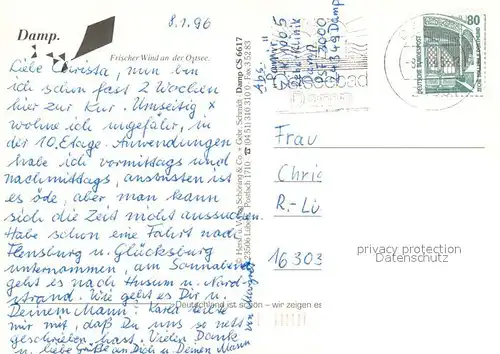 8.1.96
Damp.
Frischer Wind an der Ostsee.
Liebe Christa, nun bin
ich schon fast 2 Wochen
hier zur Kur. Umseitig x
wohne ich ungefähr, in
der 10. Etage. Anwendungen
habe ich vormittags und
nachmittags, ansonsten ist
es öde, aber man kann
sich die Zeit nicht aussuchen.
Habe schon eine Fahrt nach
Flensburg u. Glücksburg
unternommen, am Sonnabend
geht es nach Husum u. Nord-
strand. Wie geht es Dir u.
Deinem Mann? Karla teilte
mir mit, daß Du uns so nett
geschrieben hast. Vielen Dank
u. liebe Grüße an Dich u. Deinen Mann
von Margret
Damp CS 6617
Abs.
24349 Damp
Ostseebad
Damp
80
DEUTSCHE BUNDESPOST
Frau
Chris
R.-Li
16303
privacy protection
Datenschutz
Deutschland ist schön – wir zeigen es